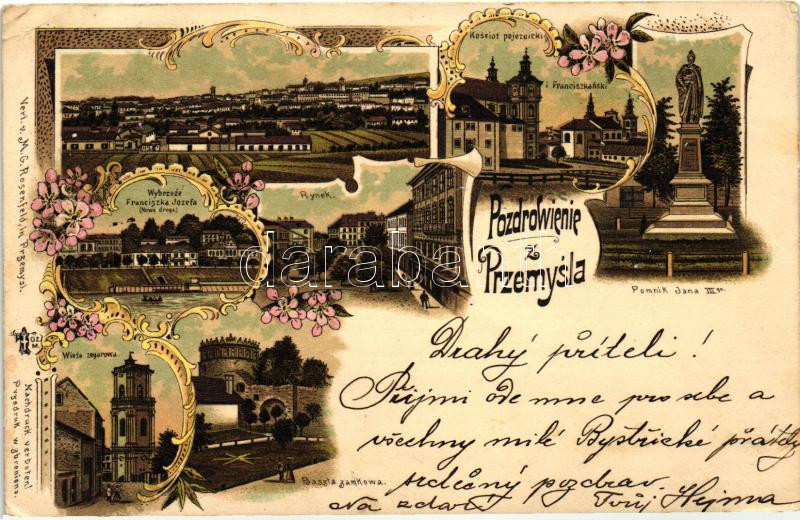 Kościoł pojezuicki
i Franciszkański
Wybrzeże
Franciszka Józefa
(Nowa droga)
Rynek.
Pozdrowienie
z
Przemyśla
Pomnik Jana III go.
Wieża zegarowa
Baszta zamkowa.
Verl. v. M. G. Rosenfeld, in Przemyśl.
Nachdruck verboten!
Przedruk wzbroniony.
darabanth
Drahý příteli!
Přijmi ode mne pro sebe a
všechny milé Bystřické přátely
srdečný pozdrav.
Na zdar! Tvůj Hejma